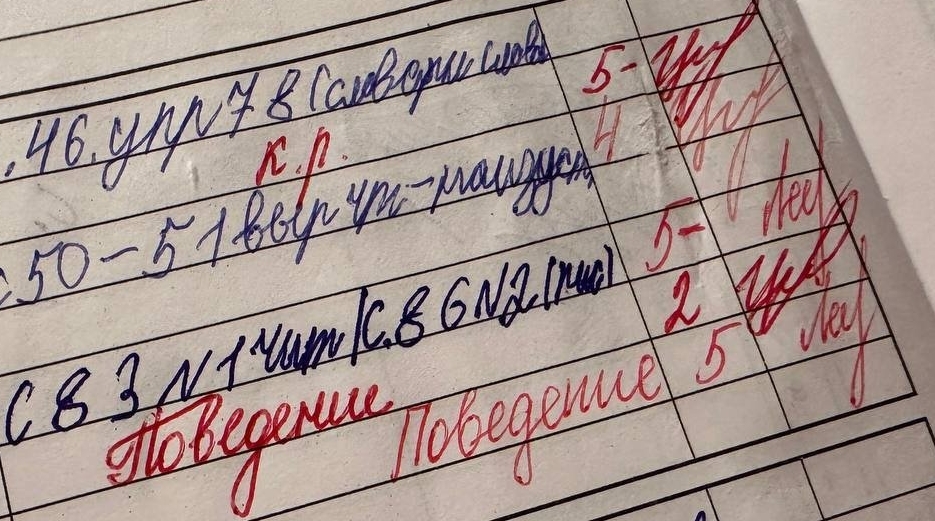 .46. упр 78 (словарн слова 5-
к.р. 4
с 50-51 выр чт-наизуст 5-
С 83 N1 чит/С.86 N2 (пис) 2
Поведение Поведение 5